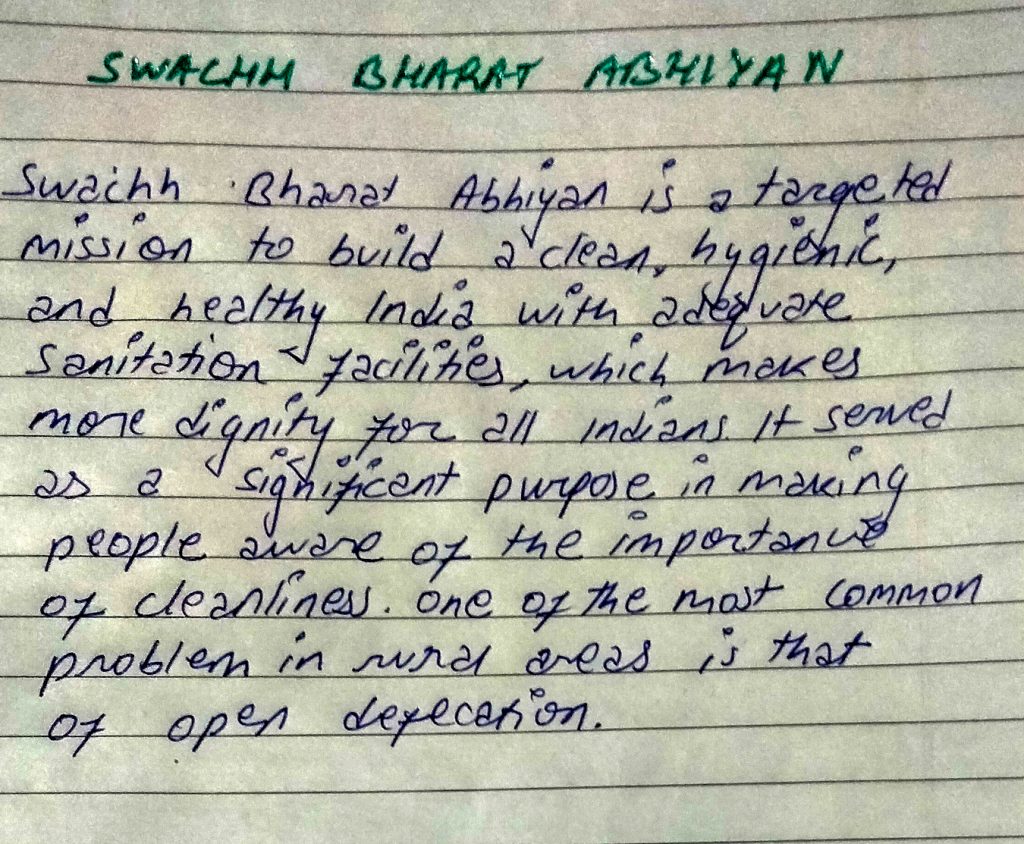 SWACHH BHARAT ABHIYAN
Swachh Bharat Abhiyan is a targeted
mission to build a clean, hygienic,
and healthy India with adequate
sanitation facilities, which makes
more dignity for all indians. It served
as a significant purpose in making
people aware of the importance
of cleanliness. one of the most common
problem in rural areas is that
of open defecation.